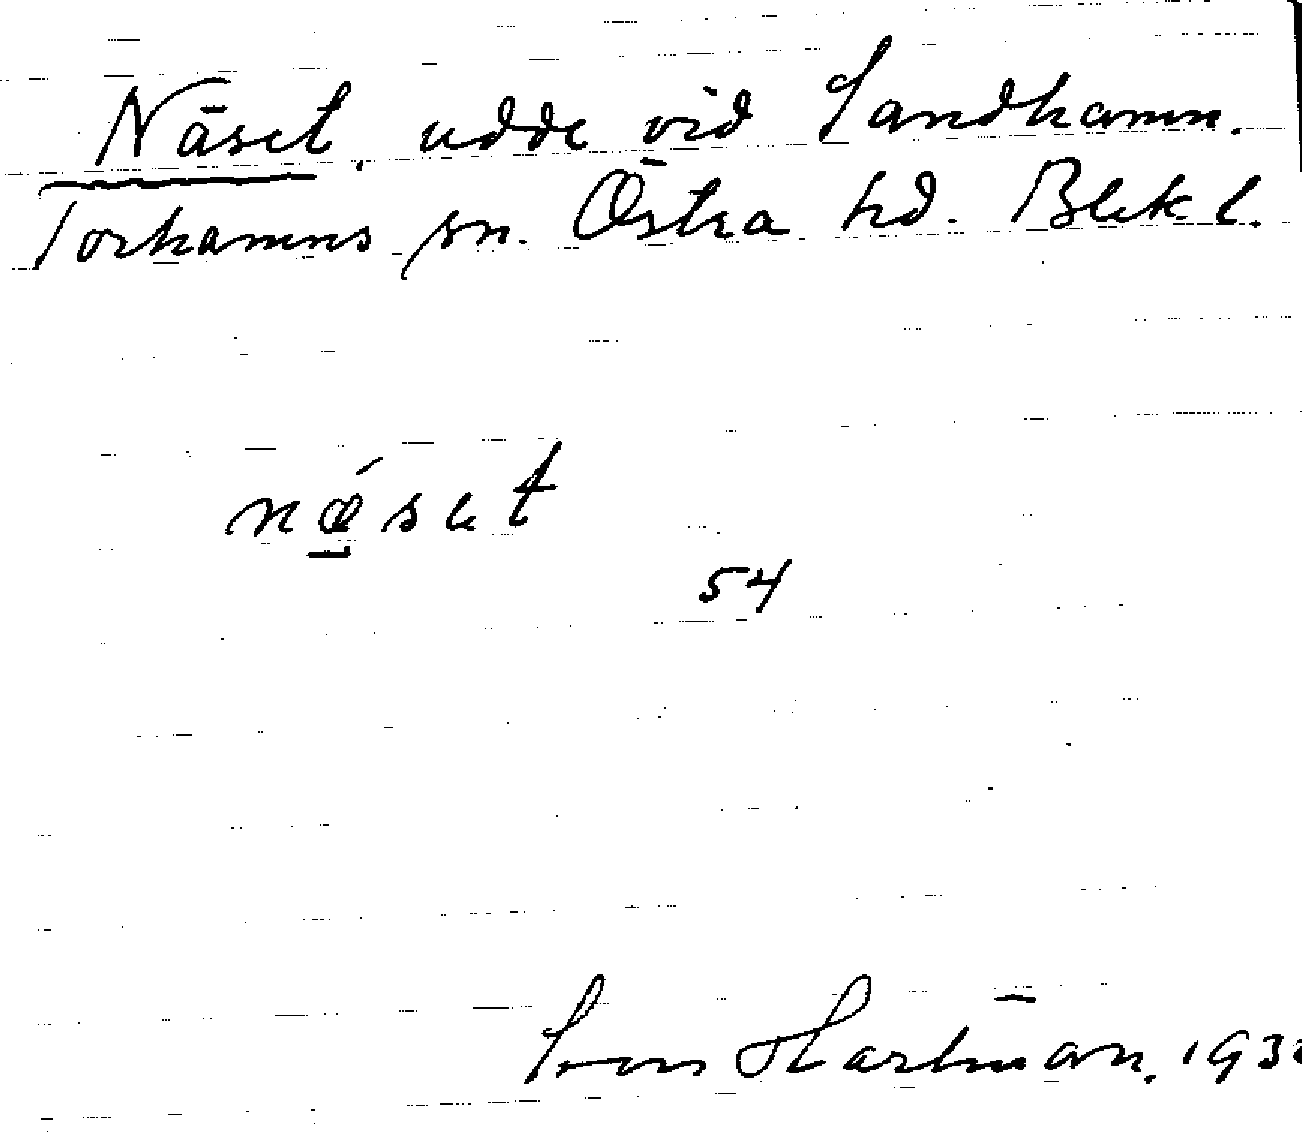 Näset, udde vid Sandhamn.
Torhamns sn. Östra hd. Blek l.
næ´set
54
Sven Hartman. 193